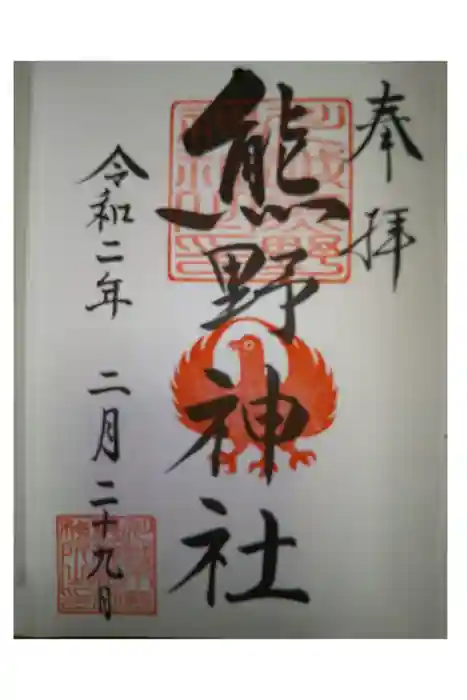 奉拝
熊野神社
令和二年 二月二十九日